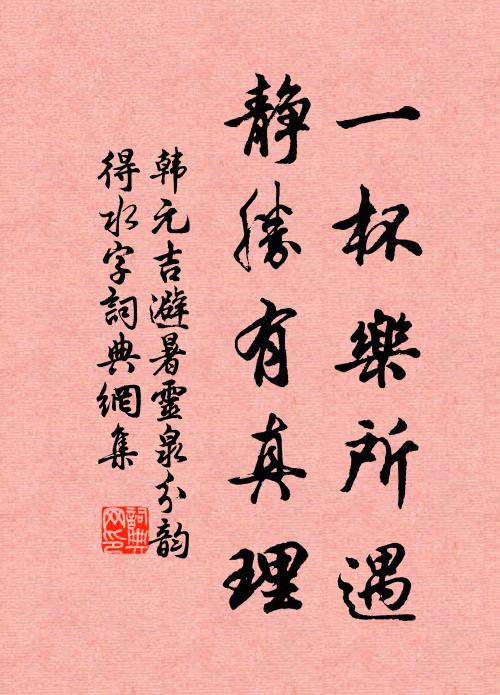 一杯樂所遇
靜勝有真理
韩元吉避暑靈泉分韵
得水字詞典網集
詞典網印